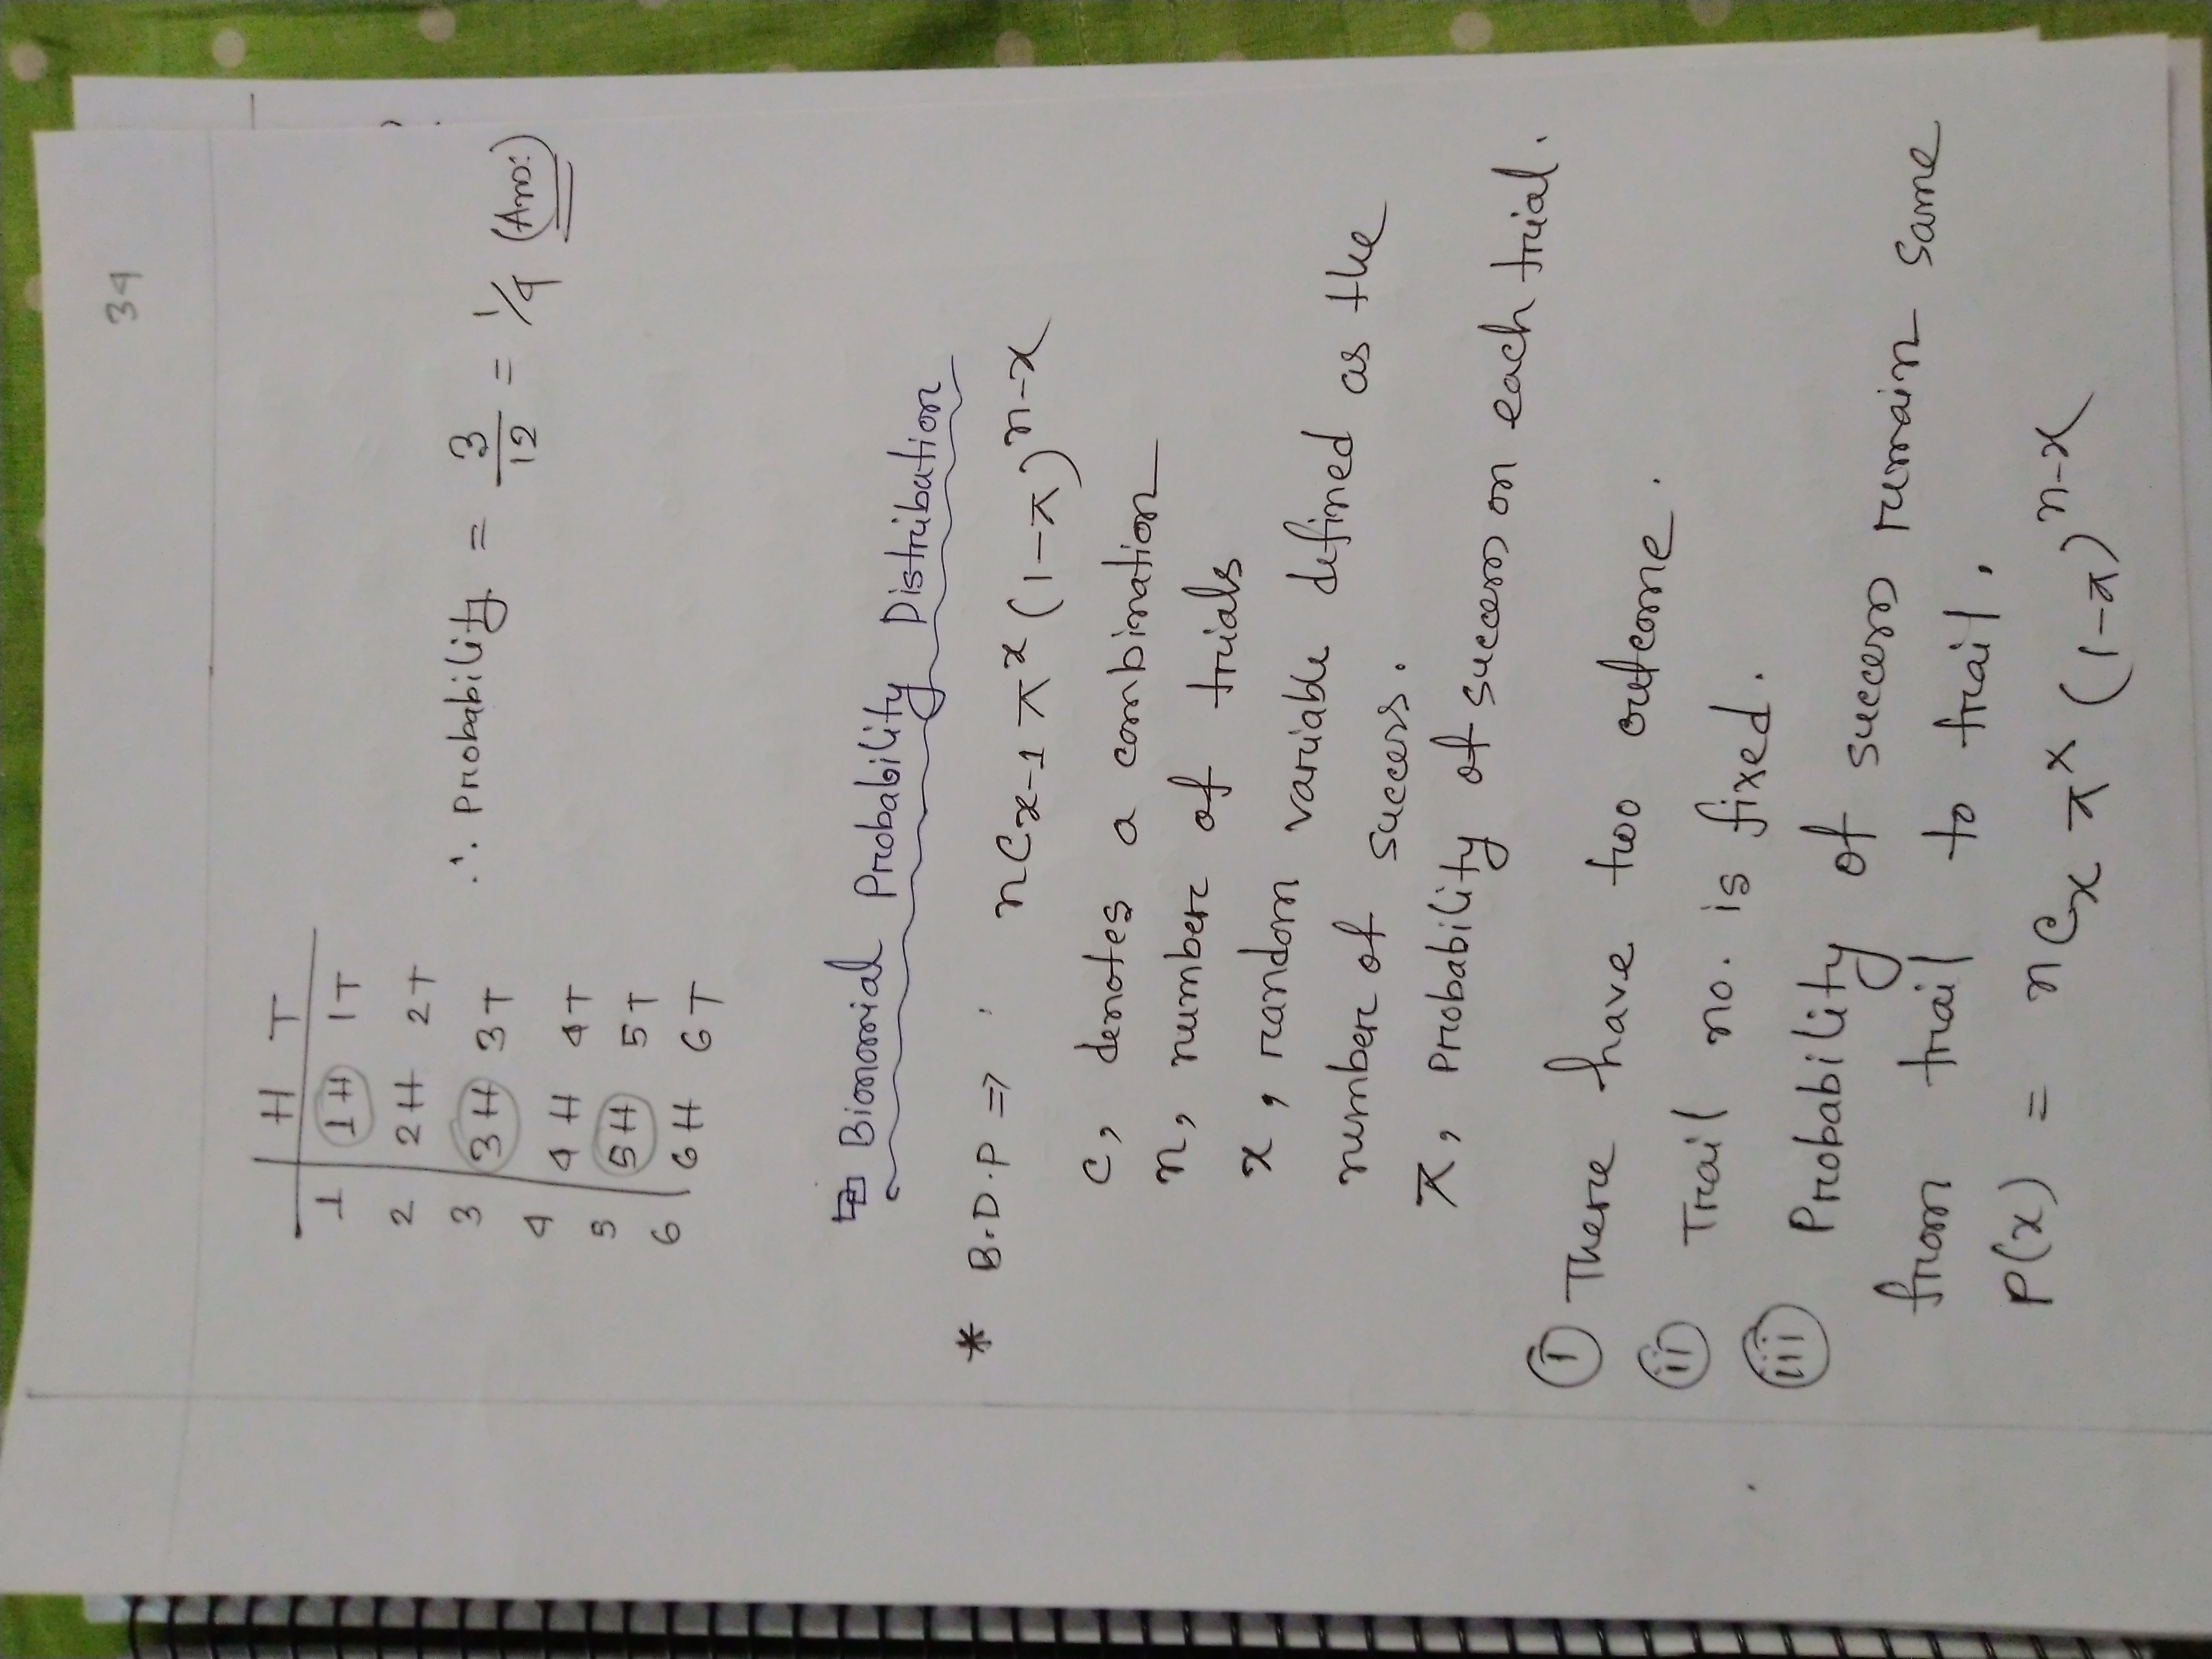 34
H T
1 1H 1T
2 2H 2T
3 3H 3T
4 4H 4T
5 5H 5T
6 6H 6T
∴ Probability = 3/12 = 1/4 (Ans:)
Bionomial Probability Distribution
* B.D.P ⇒ nCx-1 π^x (1-π)^n-x
C, denotes a combination
n, number of trials
x, random variable defined as the
number of success.
π, Probability of success on each trial.
(i) There have two outcome.
(ii) Trail no. is fixed.
(iii) Probability of success remain same
from trail to trail.
P(x) = nCx π^x (1-π)^n-x